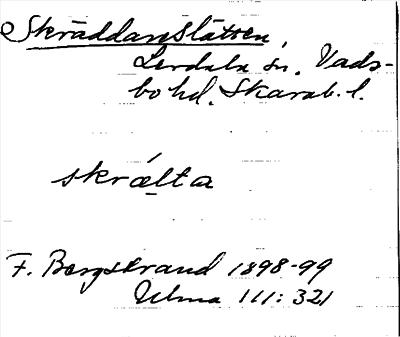 Skräddarslätten,
Lerdala sn. Vads-
bo hd. Skarab. l.
skrælta
F. Bergstrand 1898-99
Ulma 111: 321